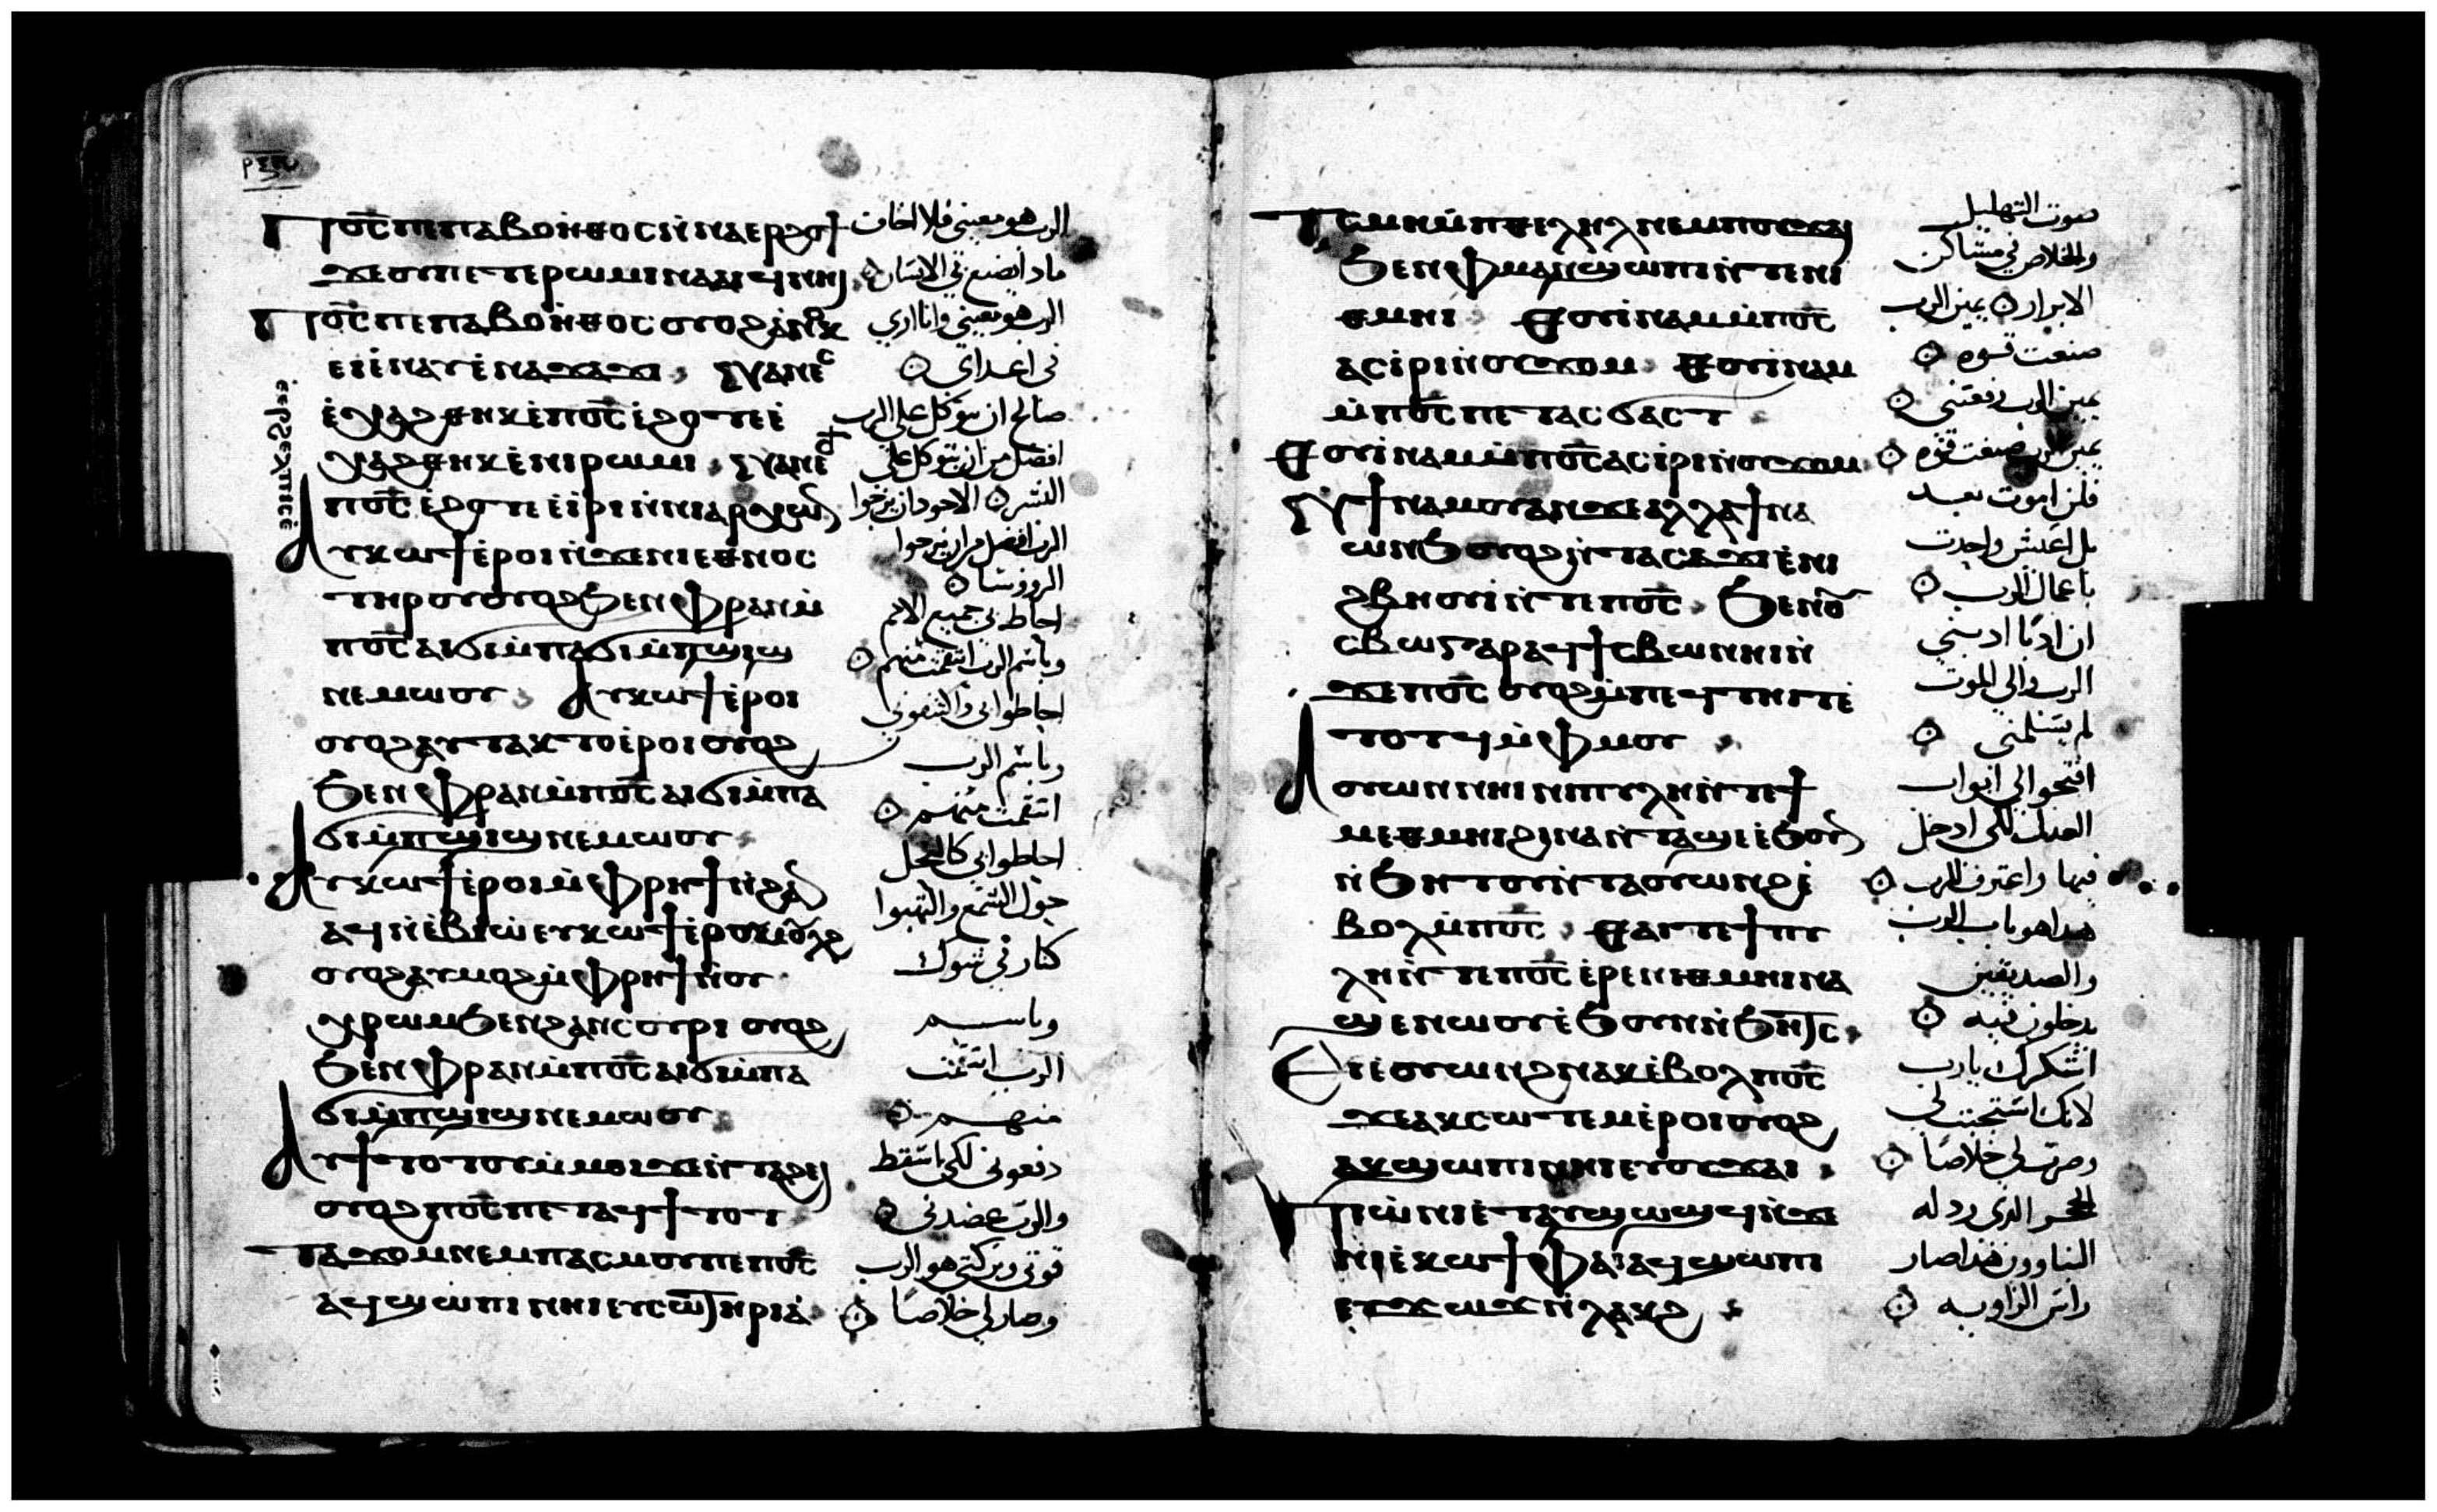 Ⲡϭⲥ̅ ⲡⲉⲡⲁⲃⲟⲏⲑⲟⲥ ⲛ̀ⲛⲁⲉⲣϩⲟϯ
ϫⲉⲟⲩⲡⲉⲧⲉⲣⲱⲙⲓⲛⲁⲁⲓϥⲛⲏⲓ
Ⲡϭⲥ̅ ⲡⲉⲡⲁⲃⲟⲏⲑⲟⲥ ⲟⲩⲟϩⲁⲛⲟⲕ
ⲉⲓⲉ̀ⲛⲁⲩⲉ̀ⲛⲁϫⲁϫⲓ Ⲥⲛⲁⲛⲉⲥ
ⲉ̀ⲭⲁϩⲑⲏⲕⲉ̀ⲡϭⲥ̅ ⲉ̀ϩⲟⲧⲉⲉ̀
ⲭⲁϩⲑⲏⲕⲉ̀ⲛⲓⲣⲱⲙⲓ Ⲥⲛⲁⲛⲉ
ⲡϭⲥ̅ ⲉ̀ϩⲟⲧⲉⲉ̀ⲓⲣⲓⲛ̀ⲛⲓⲁⲣⲭⲱⲛ
Ⲁⲩⲕⲱϯⲉ̀ⲣⲟⲓⲛ̀ϫⲉⲛⲓⲉⲑⲛⲟⲥ
ⲧⲏⲣⲟⲩⲟⲩⲟϩϧⲉⲛⲫⲣⲁⲛⲙ̀
ⲡϭⲥ̅ ⲁⲓϭⲓⲙ̀ⲡⲁϭⲓⲙ̀ⲡϣⲓϣ
ⲛⲉⲙⲱⲟⲩ Ⲁⲩⲕⲱϯⲉ̀ⲣⲟⲓ
ⲟⲩⲟϩⲁⲩⲧⲁⲕⲧⲟⲉ̀ⲣⲟⲓⲟⲩⲟϩ
ϧⲉⲛⲫⲣⲁⲛⲙ̀ⲡϭⲥ̅ ⲁⲓϭⲓⲙ̀ⲡⲁ
ϭⲓⲙ̀ⲡϣⲓϣⲛⲉⲙⲱⲟⲩ
Ⲁⲩⲕⲱϯⲉ̀ⲣⲟⲓⲙ̀ⲫⲣⲏϯⲛ̀ϩⲁⲛ
ⲁϥⲛ̀ⲉⲃⲓⲱ̀ⲉⲩⲕⲱϯⲉ̀
ⲟⲩⲟϩⲁⲩⲙⲟϩⲙ̀ⲫⲣⲏϯⲛ̀ⲟⲩ
ⲭⲣⲱⲙϧⲉⲛϩⲁⲛⲥⲟⲩⲣⲓ ⲟⲩⲟϩ
ϧⲉⲛⲫⲣⲁⲛⲙ̀ⲡϭⲥ̅ ⲁⲓϭⲓⲙ̀ⲡⲁ
ϭⲓⲙ̀ⲡϣⲓϣⲛⲉⲙⲱⲟⲩ
Ⲁⲩϯⲧⲟⲧⲟⲩⲙ̀ⲙⲟⲓϫⲉⲛ̀ⲧⲁϩⲉⲓ
ⲟⲩⲟϩⲡϭⲥ̅ ⲡⲉⲧⲁϥϯⲧⲟⲧ
Ⲧⲁϫⲟⲙⲛⲉⲙⲡⲁⲥⲙⲟⲩⲡⲉⲡϭⲥ̅
ⲁϥϣⲱⲡⲓⲛⲏⲓⲉⲩⲥⲱⲧⲏⲣⲓⲁ
الرب هو معيني فلا اخاف
ماذا يصنع بي الانسان
الرب هو معيني وانا اري
في اعداي
صالح ان نتوكل على الرب
افضل من ان نتوكل على
البشر الاجود ان نرجوا
الرب افضل من ان نرجوا
الرووسا
احاط بي جميع الامم
وباسم الرب انتقمت منهم
احاطوا بي واكتنفوني
وباسم الرب
انتقمت منهم
احاطوا بي كالنحل
حول الشمع والتهبوا
كنار في شوك
وباسم
الرب انتقمت
منهم
دفعوني لكي اسقط
والرب عضدني
قوتي وبركتي هو الرب
وصار لي خلاصا
Ⲧⲥⲙⲏⲙ̀ⲡⲑⲉⲗⲏⲗⲛⲉⲙⲡⲟⲩϫⲁⲓ
ϧⲉⲛⲫⲙⲁⲛ̀ϣⲱⲡⲓⲛ̀ⲧⲉⲛⲓ
ⲑⲙⲏⲓ Ⲑⲟⲩⲓⲛⲁⲙⲙ̀ⲡϭⲥ̅
ⲁⲥⲓⲣⲓⲛ̀ⲟⲩϫⲟⲙ Ⲑⲟⲩⲓⲛⲁⲙ
ⲙ̀ⲡϭⲥ̅ ⲡⲉⲧⲁⲥϭⲁⲥⲧ
Ⲑⲟⲩⲓⲛⲁⲙⲙ̀ⲡϭⲥ̅ ⲁⲥⲓⲣⲓⲛ̀ⲟⲩϫⲟⲙ
ϯⲛⲁⲙⲟⲩⲁⲛϫⲉⲁⲗⲗⲁϯⲛⲁ
ⲱⲛϧⲟⲩⲟϩⲛ̀ⲧⲁⲥⲁϫⲓⲉ̀ⲛⲓ
ϩⲃⲏⲟⲩⲓⲛ̀ⲧⲉⲡϭⲥ̅ ϧⲉⲛⲟⲩ
ⲥⲃⲱⲅⲁⲣⲁϥϯⲥⲃⲱⲛⲏⲓⲛ̀
ϫⲉⲡϭⲥ̅ ⲟⲩⲟϩⲙ̀ⲡⲉϥⲧⲏⲓⲧⲉ̀
ⲧⲟⲧϥⲙ̀ⲫⲙⲟⲩ
Ⲁⲟⲩⲱⲛⲛⲏⲓⲛ̀ⲛⲓⲡⲩⲗⲏⲛ̀ⲧⲉϯ
ⲙⲉⲑⲙⲏⲓϩⲓⲛⲁⲛ̀ⲧⲁϣⲉⲉ̀ϧⲟⲩⲛ
ⲛ̀ϧⲏⲧⲟⲩⲛ̀ⲧⲁⲟⲩⲱⲛϩⲉ̀
ⲃⲟⲗⲙ̀ⲡϭⲥ̅ Ⲑⲁⲓⲧⲉϯⲡⲩ
ⲗⲏⲛ̀ⲧⲉⲡϭⲥ̅ ⲉ̀ⲣⲉⲛⲓⲑⲙⲏⲓⲛⲁ
ϣⲉⲛⲱⲟⲩⲉ̀ϧⲟⲩⲛⲛ̀ϧⲏⲧⲥ
Ⲉⲓⲉ̀ⲟⲩⲱⲛϩⲛⲁⲕⲉ̀ⲃⲟⲗⲡϭⲥ̅
ϫⲉⲁⲕⲥⲱⲧⲉⲙⲉ̀ⲣⲟⲓⲟⲩⲟϩ
ⲁⲕϣⲱⲡⲓⲛⲏⲓⲉⲩⲟⲩϫⲁⲓ
Ⲡⲓⲱ̀ⲛⲓⲉ̀ⲧⲁⲩϣⲟϣϥⲛ̀ϫⲉ
ⲛⲓⲉ̀ⲕⲱϯⲫⲁⲓⲁϥϣⲱⲡⲓ
ⲉⲩϫⲱϫⲛ̀ⲗⲁⲕϩ
صوت التهليل
والخلاص في مساكن
الابرار يمين الرب
صنعت قوه
يمين الرب رفعتني
يمين الرب صنعت قوه
فلن اموت بعد
بل اعيش واحدث
باعمال الرب
ان ادبا ادبني
الرب والى الموت
لم يسلمني
افتحوا لي ابواب
العدل لكي ادخل
فيها واعترف للرب
هذا هو باب الرب
والصديقين
يدخلون فيه
اشكرك يا رب
لانك استجبت لي
وصرت لي خلاصا
الحجر الذي رذله
البناوون هذا صار
راس الزاويه